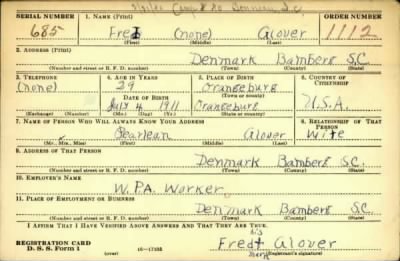 Camp S.C.
SERIAL NUMBER 1. NAME (Print) ORDER NUMBER
685 Fred (none) Glover 1112
(First) (Middle) (Last)
2. ADDRESS (Print)
Denmark Bamberg S.C.
(Number and street or R. F. D. number) (Town) (County) (State)
3. TELEPHONE 4. AGE IN YEARS 5. PLACE OF BIRTH 6. COUNTRY OF CITIZENSHIP
(none) 29 Orangeburg
(Town or county)
DATE OF BIRTH
July 4 1911 Orangeburg U.S.A.
(Exchange) (Number) (Mo.) (Day) (Yr.) (State or country)
7. NAME OF PERSON WHO WILL ALWAYS KNOW YOUR ADDRESS 8. RELATIONSHIP OF THAT PERSON
Pearlean Glover Wife
(Mr., Mrs., Miss) (First) (Middle) (Last)
9. ADDRESS OF THAT PERSON
Denmark Bamberg S.C.
(Number and street or R. F. D. number) (Town) (County) (State)
10. EMPLOYER'S NAME
W.P.A. Worker
11. PLACE OF EMPLOYMENT OR BUSINESS
Denmark Bamberg S.C.
(Number and street or R. F. D. number) (Town) (County) (State)
I AFFIRM THAT I HAVE VERIFIED ABOVE ANSWERS AND THAT THEY ARE TRUE.
his
REGISTRATION CARD Fred + Glover
D. S. S. Form 1 (over) 16—17105 mark (Registrant's signature)